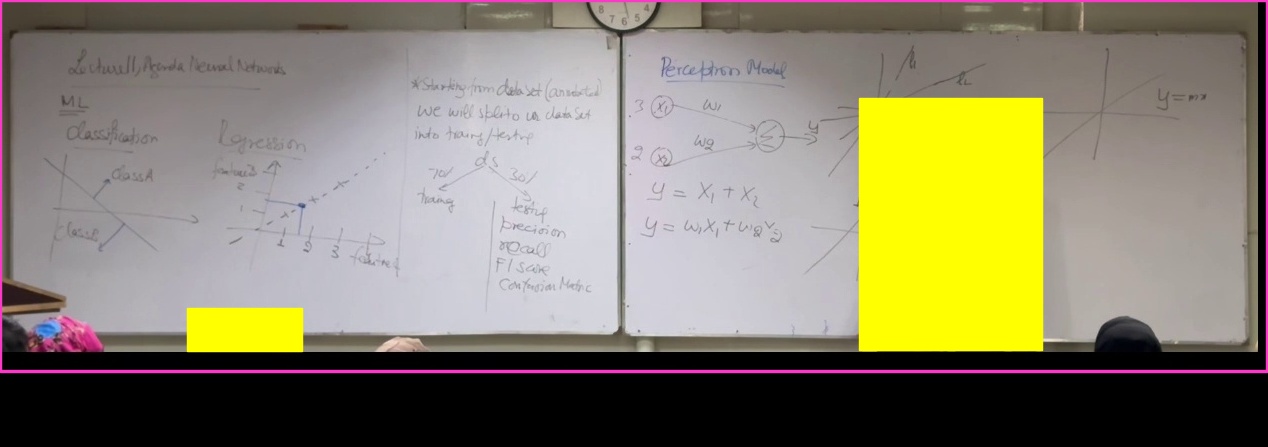 Lecture 11, Agenda Neural Networks
ML
Classification
class A
class B
Regression
2
1
1 2 3
*Starting from dataset (annotated)
we will split to us dataset
into traing/testing
ds
70% 30%
traing
testing
precision
recall
F1 score
Confusion Metric
8 7 6 5 4
Perceptron Model
3 x1 w1
Σ y
2 x2 w2
y = x1 + x2
y = w1x1 + w2x2
l1
l2
y = mx